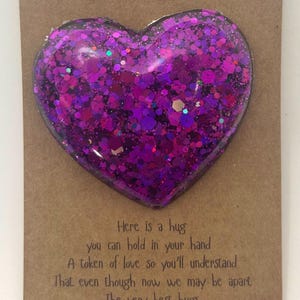 Here is a hug
you can hold in your hand
A token of love so you'll understand
That even though now we may be apart